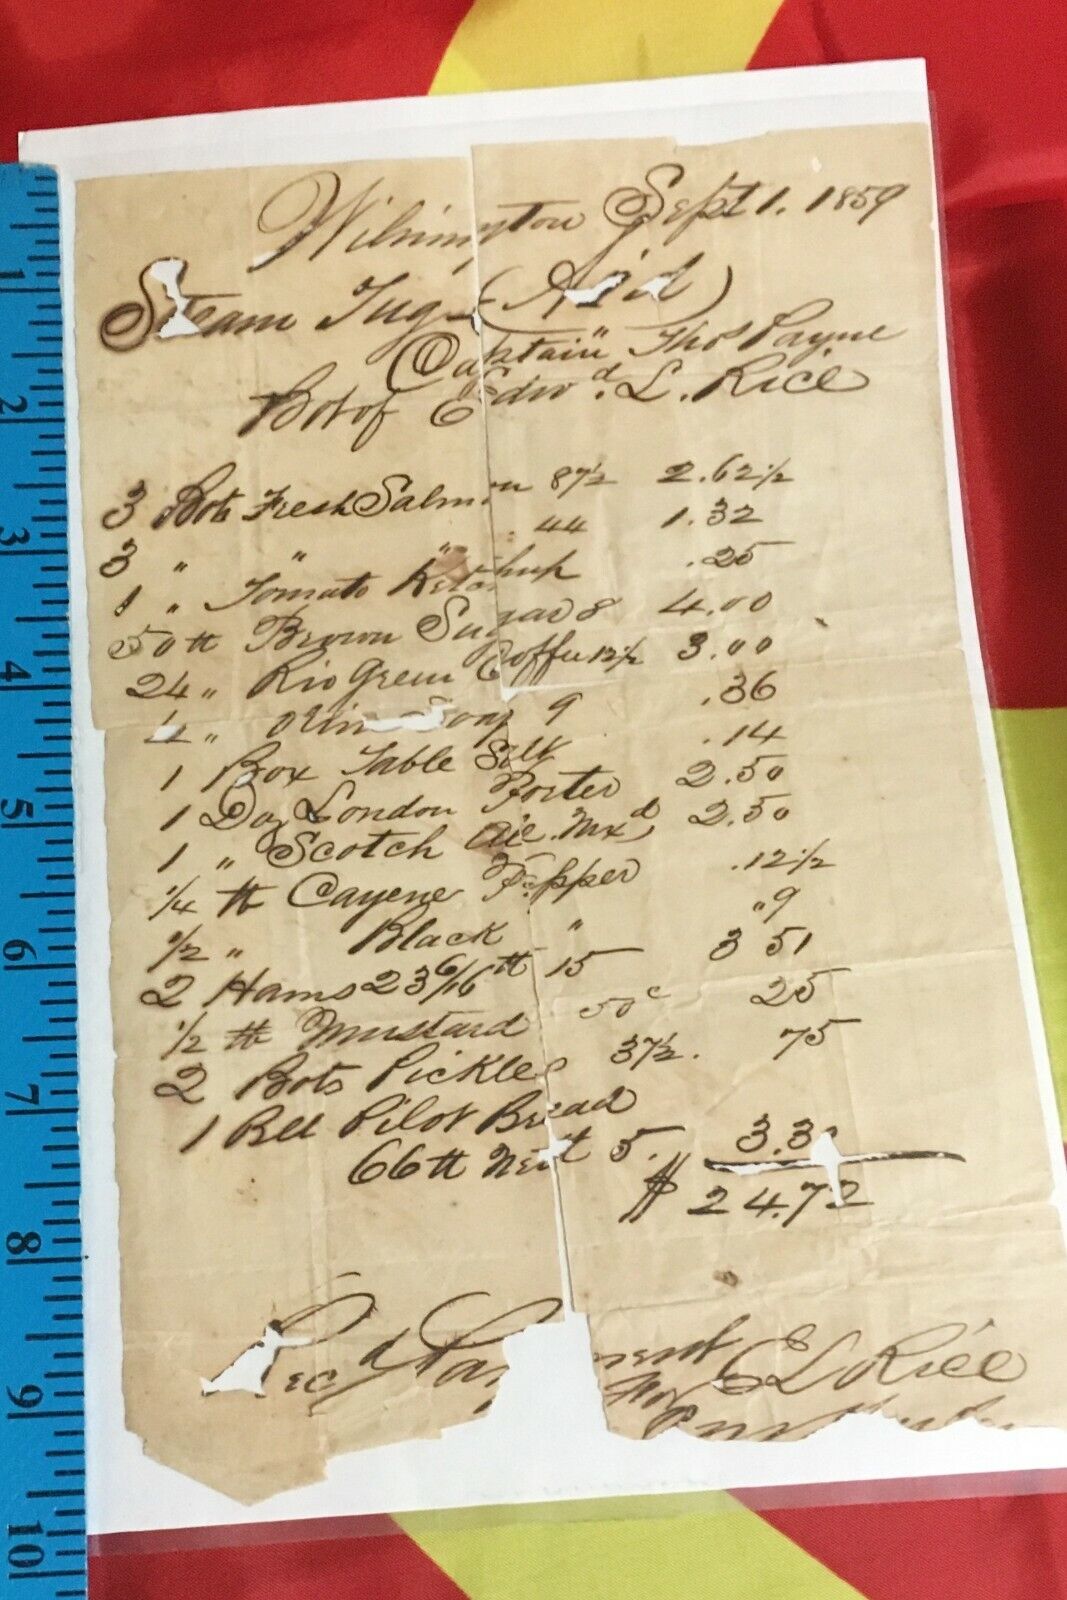 Wilmington Sept 1. 1859
Steam Tug (Aid)
Captain Thos Payne
Bot of Edwd. L. Rice
3 Bots Fresh Salmon 87½ 2.62½
3 " " " 44 1.32
1 " Tomato Ketchup .25
50 lb Brown Sugar 8 4.00
24 " Rio Green Coffee 12½ 3.00
4 " Soap 9 .36
1 Box Table Salt .14
1 Doz London Porter 2.50
1 " Scotch Ale Mxd 2.50
¼ lb Cayene Pepper .12½
½ " Black " "9
2 Hams 23 6/16 lb 15 3 51
½ lb Mustard 50c 25
2 Bots Pickles 37½. 75
1 Bll Pilot Bread
66 lb Nett 5. 3.3
$ 24.72
Recd Payment E L Rice
For
1
2
3
4
5
6
7
8
9
10